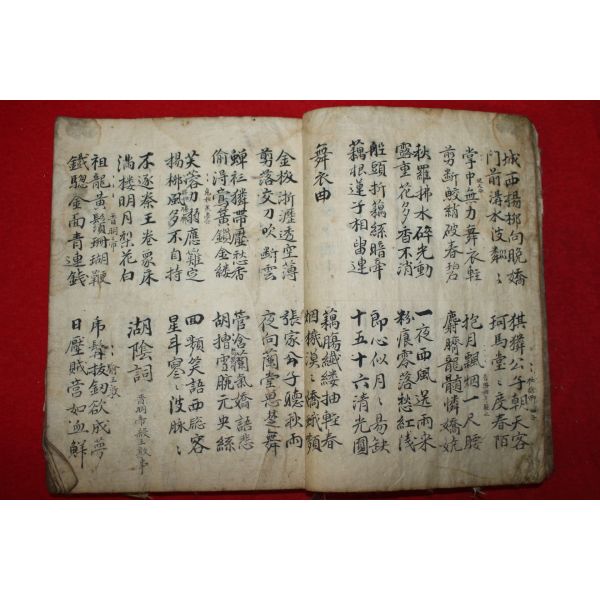 城西揚柳向晚嬌　麒獜公子朝天客
門前溝水波粼〻　珂馬璫〻度春陌
掌中無力舞衣輕　抱月飄烟一尺腰
剪斷鮫綃破春碧　麝臍龍髓憐嬌嬈
秋羅拂水碎光動　一夜西風送雨來
露重花多香不消　粉痕零落愁紅淺
船頭折藕絲暗牽　郎心似月〻易缺
藕根蓮子相留連　十五十六清光圓
舞衣曲　藕膓纖縷抽輕春
烟機漠〻嬌娥顰
金梭淅瀝透空薄　張家公子聽秋雨
剪落交刀吹斷雲　夜向蘭堂思楚舞
蟬衫獜帶壓愁香　管含蘭氣嬌語悲
偷得鶯黃鎖金縷　胡槽雪腕元央絲
芙蓉力弱應難定　回顰笑語西窓客
揚柳風多不自持　星斗寥〻波脉〻
不逐秦王卷象床
滿樓明月梨花白　湖陰詞
祖龍黃鬚珊瑚鞭　虎髯拔釼欲成夢
鐵驄金面青連錢　日壓賊營如血鮮